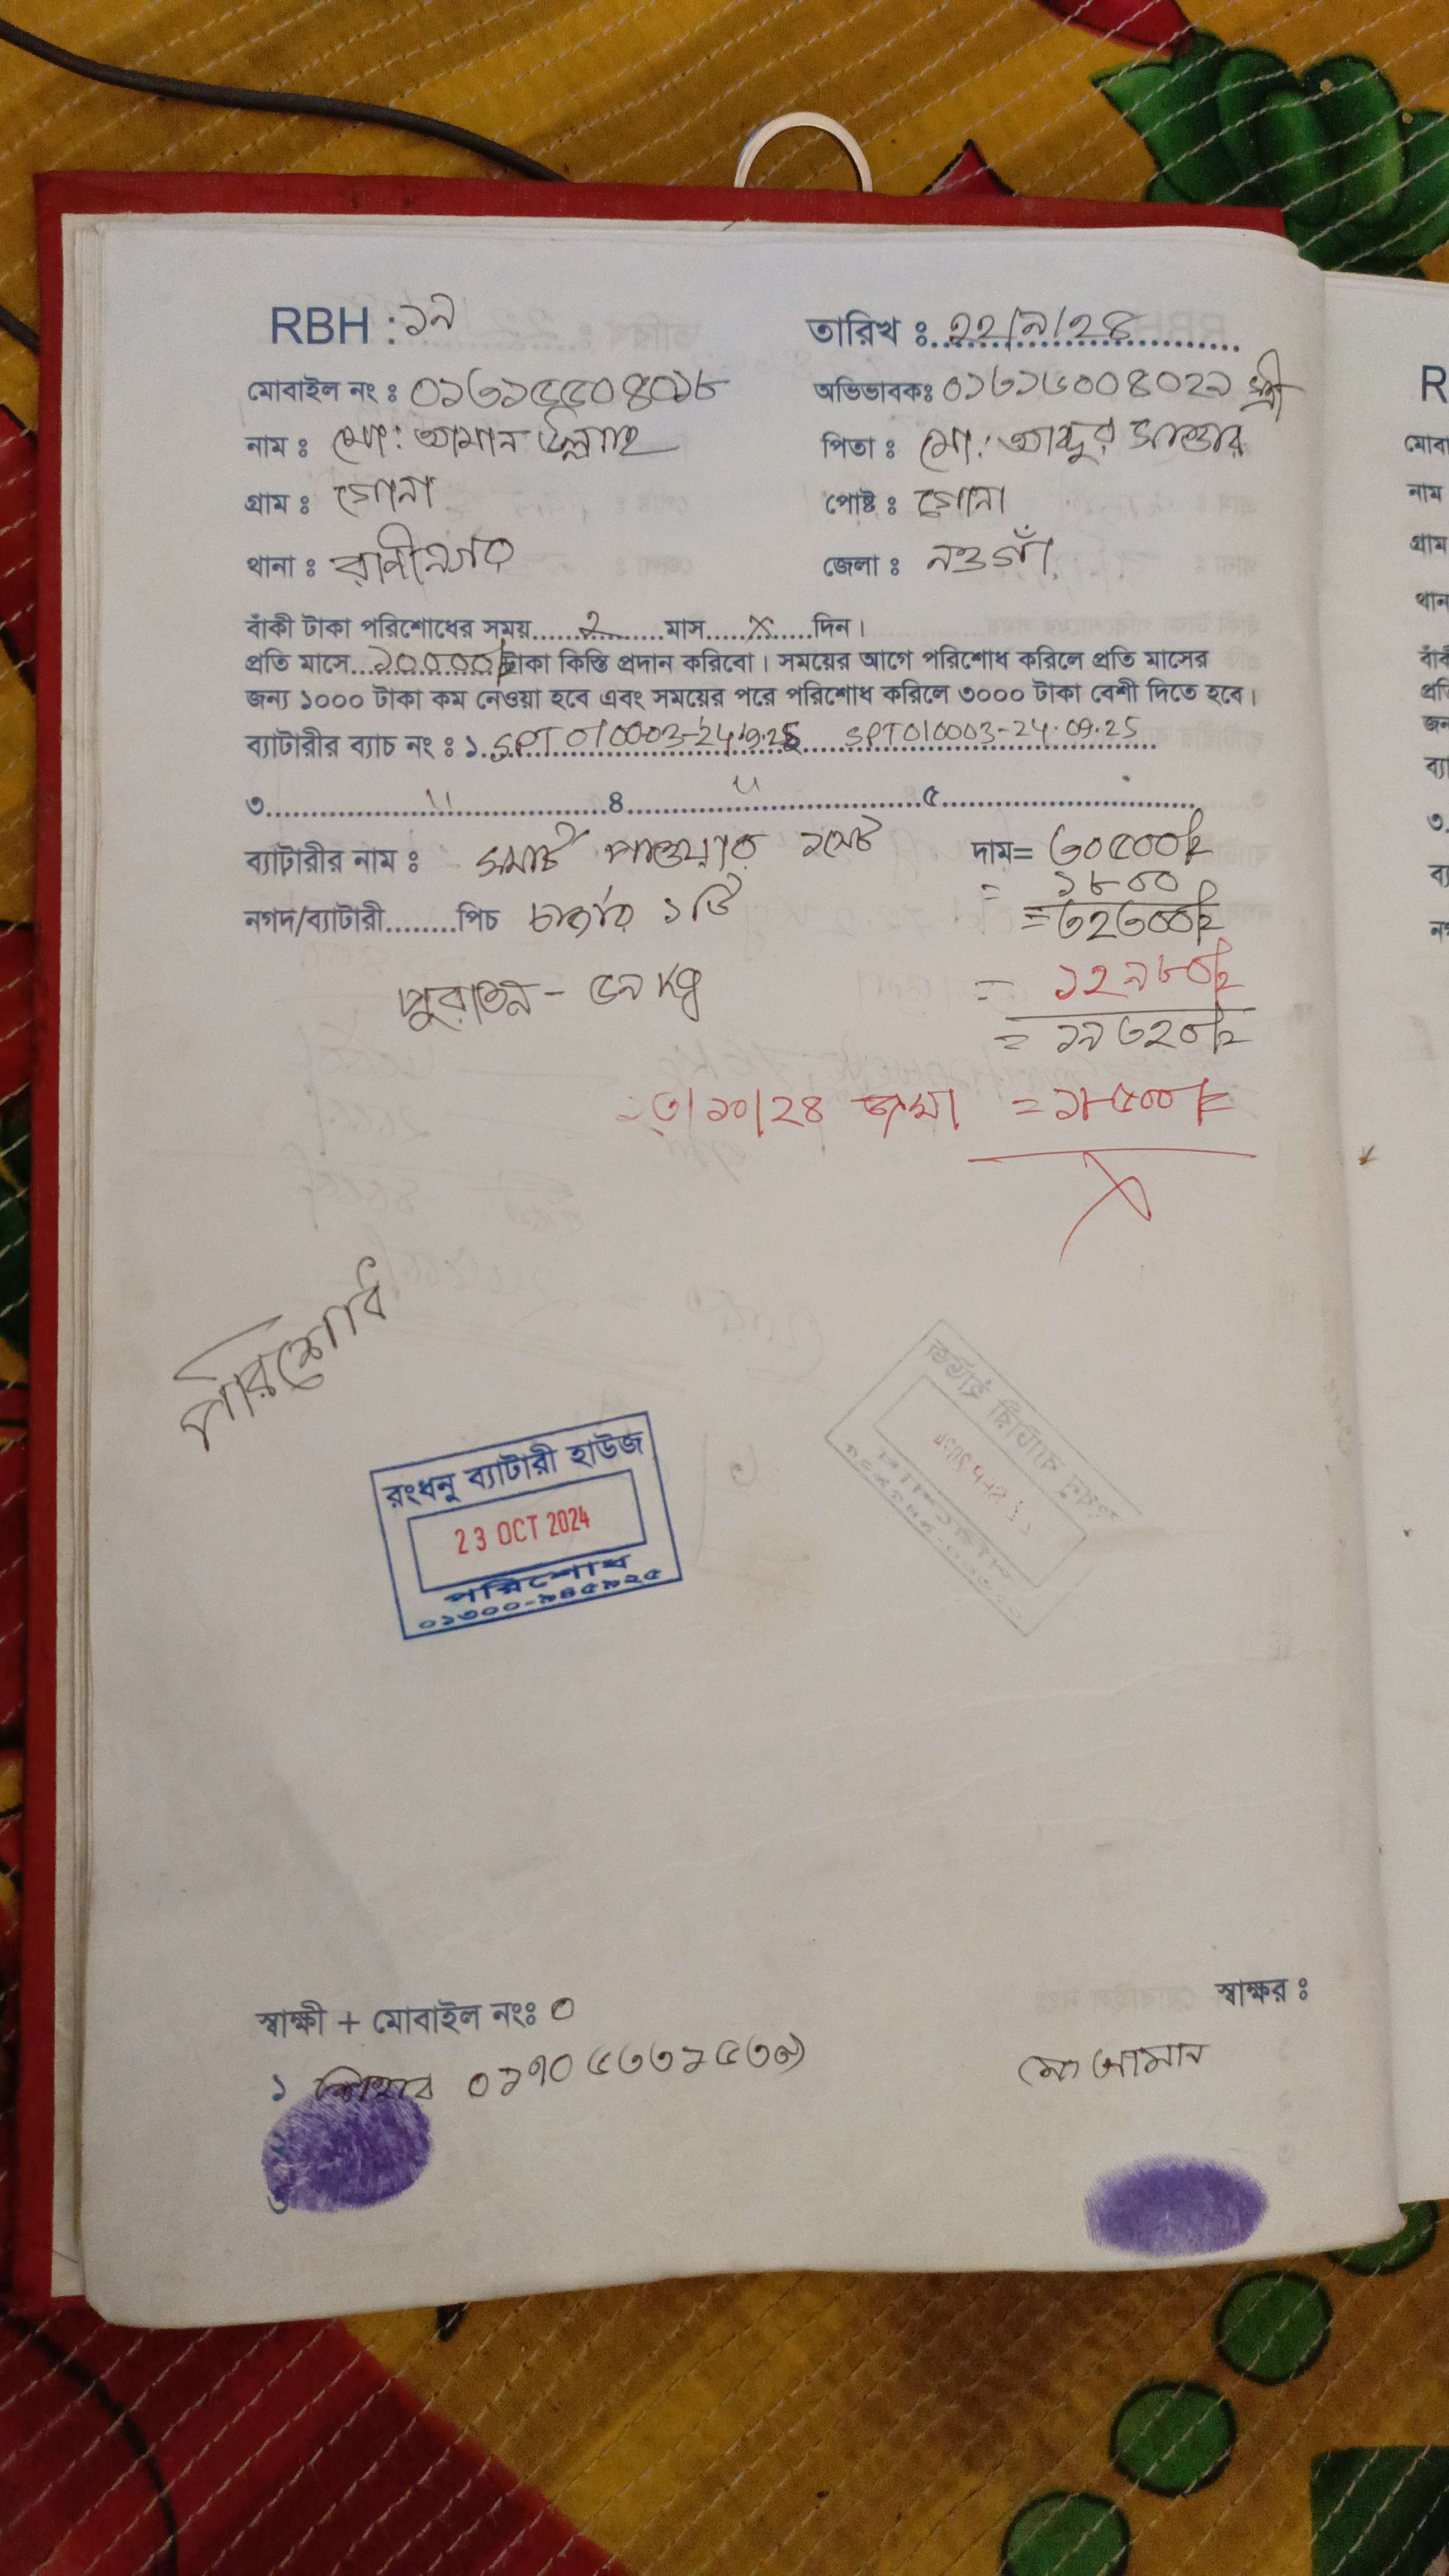 RBH : ১৯ তারিখ ঃ ২২/৯/২৪
মোবাইল নং ঃ ০১৩১৫৫০৪০১৮ অভিভাবকঃ ০১৩১৬০০৪০২৯ স্ত্রী
নাম ঃ মো: আমান উল্লাহ পিতা ঃ মো: আব্দুর সাত্তার
গ্রাম ঃ গোনা পোষ্ট ঃ গোনা
থানা ঃ রানীনগর জেলা ঃ নওগাঁ
বাঁকী টাকা পরিশোধের সময়......২......মাস......×......দিন।
প্রতি মাসে...১০০০০/=টাকা কিস্তি প্রদান করিবো। সময়ের আগে পরিশোধ করিলে প্রতি মাসের
জন্য ১০০০ টাকা কম নেওয়া হবে এবং সময়ের পরে পরিশোধ করিলে ৩০০০ টাকা বেশী দিতে হবে।
ব্যাটারীর ব্যাচ নং ঃ ১. SPT010003-24.9.25 ২ SPT010003-24.09.25
৩........."........৪........."........৫.........
ব্যাটারীর নাম ঃ স্মার্ট পাওয়ার ১সেট দাম= ৩০৫০০/=
= ১৮০০
নগদ/ব্যাটারী........পিচ চার্জার ১টি = ৩২৩০০/=
পুরাতন - ৫৯ Kg = ১২৯৮০/=
= ১৯৩২০/=
২৩/১০/২৪ জমা = ১৮৫০০/=
×
পরিশোধ
রংধনু ব্যাটারী হাউজ
23 OCT 2024
পরিশোধ
০১৩০০-৯৪৫৯২৫
স্বাক্ষর ঃ
স্বাক্ষী + মোবাইল নংঃ ০
১ ০১৭০৫৩৩১৫৩৯
মো আমান
৩